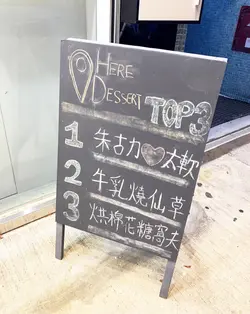 HERE
DESSERT TOP3
1 朱古力♡太軟
2 牛乳燒仙草
3 烘棉花糖窩夫